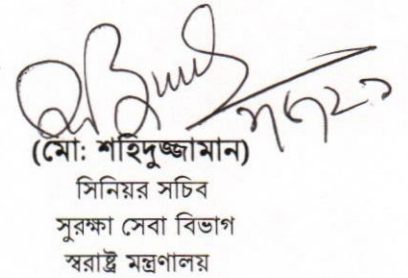 (মো: শহিদুজ্জামান)
সিনিয়র সচিব
সুরক্ষা সেবা বিভাগ
স্বরাষ্ট্র মন্ত্রণালয়